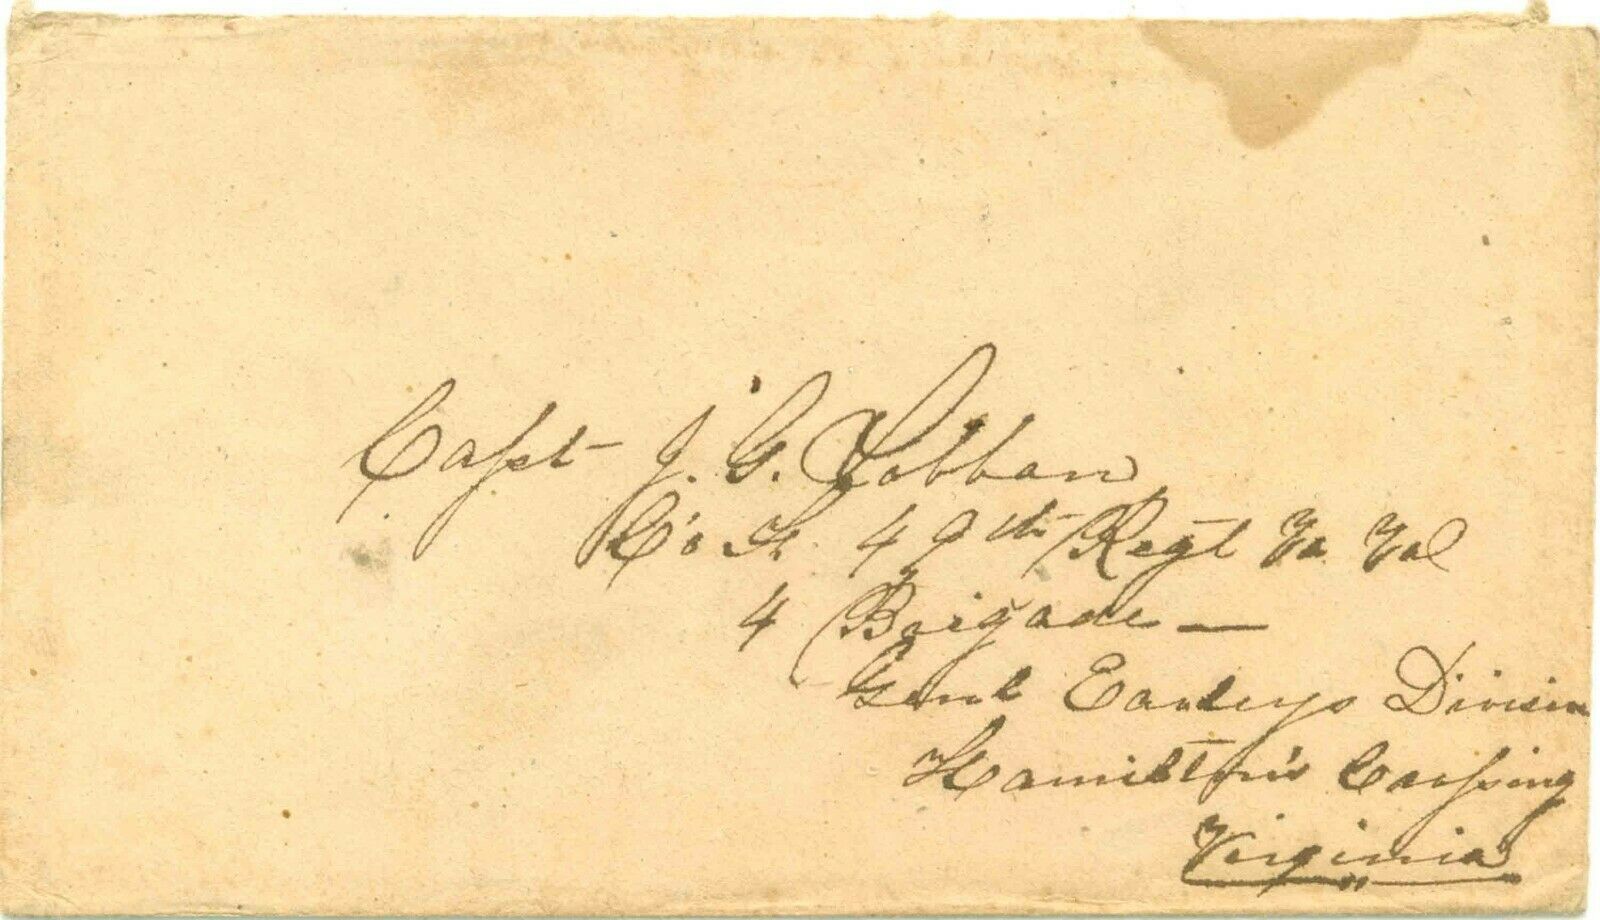 Capt J. G. Lobban
Co H. 49th Regt Va Vol
4 Brigade —
Genl Earleys Division
Hamilton's Crossing
Virginia